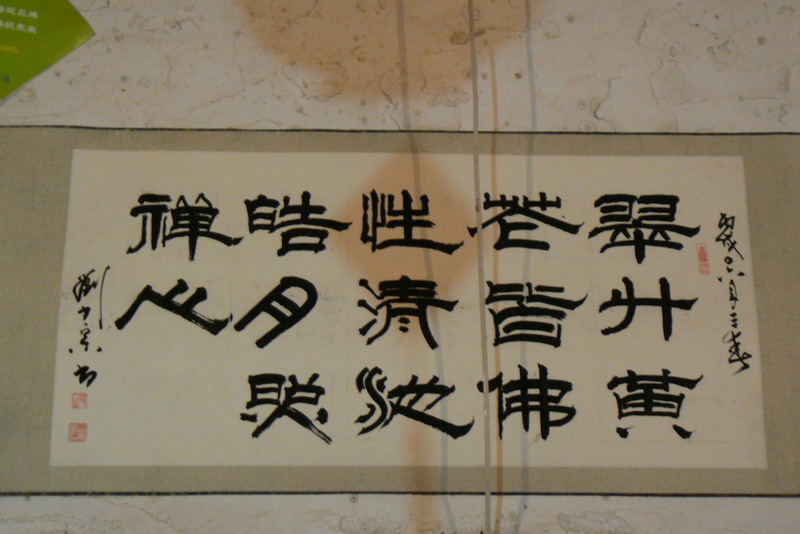 丙戌
翠竹黄
花皆佛
性清池
皓月照
禅心